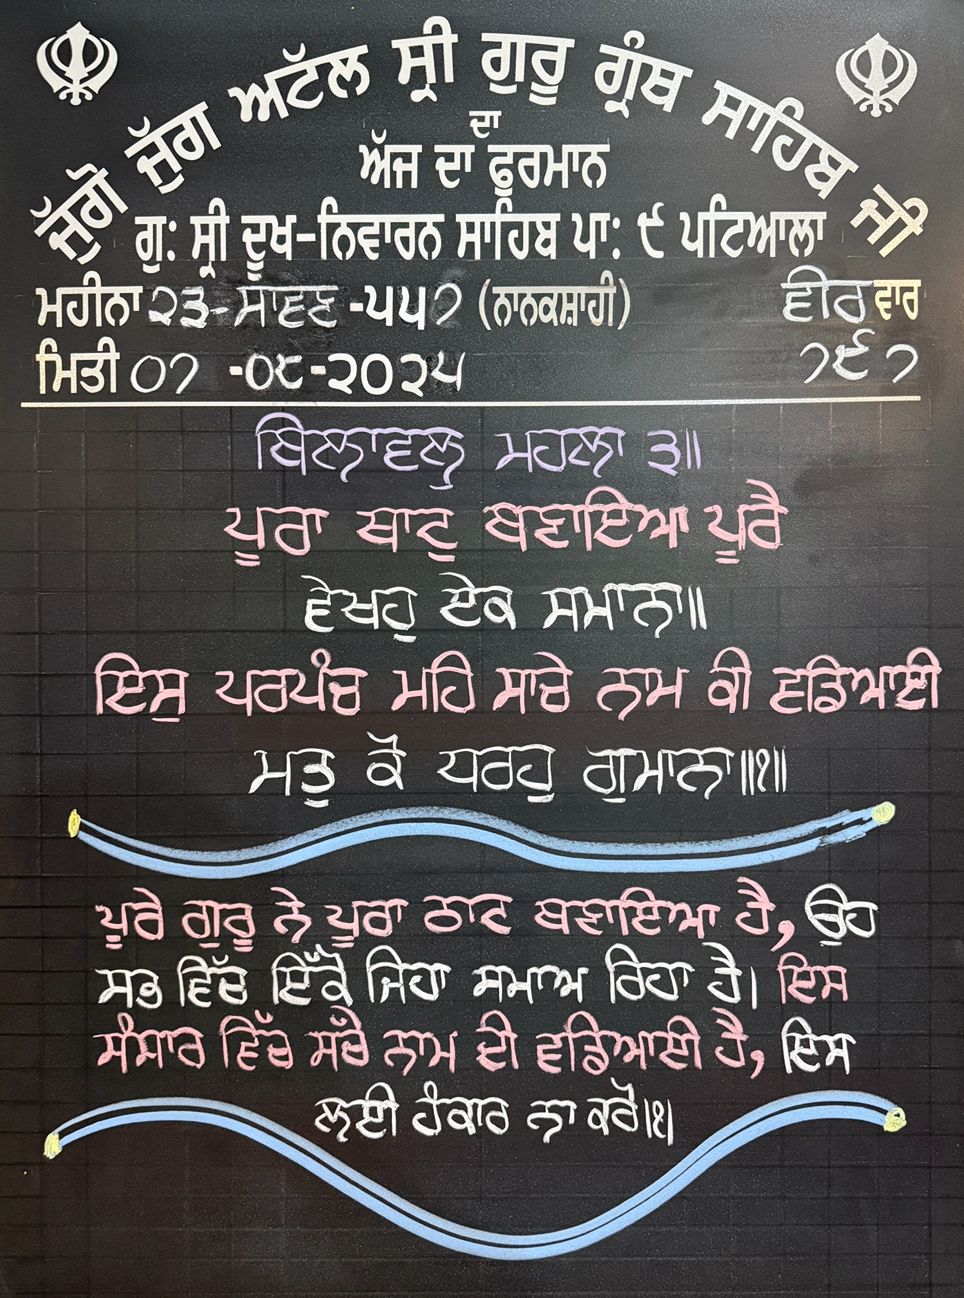 ਜੁੱਗੋ ਜੁੱਗ ਅਟੱਲ ਸ੍ਰੀ ਗੁਰੂ ਗ੍ਰੰਥ ਸਾਹਿਬ ਜੀ
ਦਾ
ਅੱਜ ਦਾ ਫੂਰਮਾਨ
ਗੁ: ਸ੍ਰੀ ਦੂਖ-ਨਿਵਾਰਨ ਸਾਹਿਬ ਪਾ: ੯ ਪਟਿਆਲਾ
ਮਹੀਨਾ ੨੩-ਸਾਵਣ-੫੫੭ (ਨਾਨਕਸ਼ਾਹੀ) ਵੀਰ ਵਾਰ
ਮਿਤੀ ੦੭ -੦੮-੨੦੨੫ ੭੯੭
ਬਿਲਾਵਲੁ ਮਹਲਾ ੩॥
ਪੂਰਾ ਥਾਟੁ ਬਣਾਇਆ ਪੂਰੈ
ਵੇਖਹੁ ਏਕ ਸਮਾਨਾ॥
ਇਸੁ ਪਰਪੰਚ ਮਹਿ ਸਾਚੇ ਨਾਮ ਕੀ ਵਡਿਆਈ
ਮਤੁ ਕੋ ਧਰਹੁ ਗੁਮਾਨਾ॥੧॥
ਪੂਰੇ ਗੁਰੂ ਨੇ ਪੂਰਾ ਠਾਟ ਬਣਾਇਆ ਹੈ, ਉਹ
ਸਭ ਵਿੱਚ ਇੱਕੋ ਜਿਹਾ ਸਮਾਅ ਰਿਹਾ ਹੈ। ਇਸ
ਸੰਸਾਰ ਵਿੱਚ ਸੱਚੇ ਨਾਮ ਦੀ ਵਡਿਆਈ ਹੈ, ਇਸ
ਲਈ ਹੰਕਾਰ ਨਾ ਕਰੋ।੧।